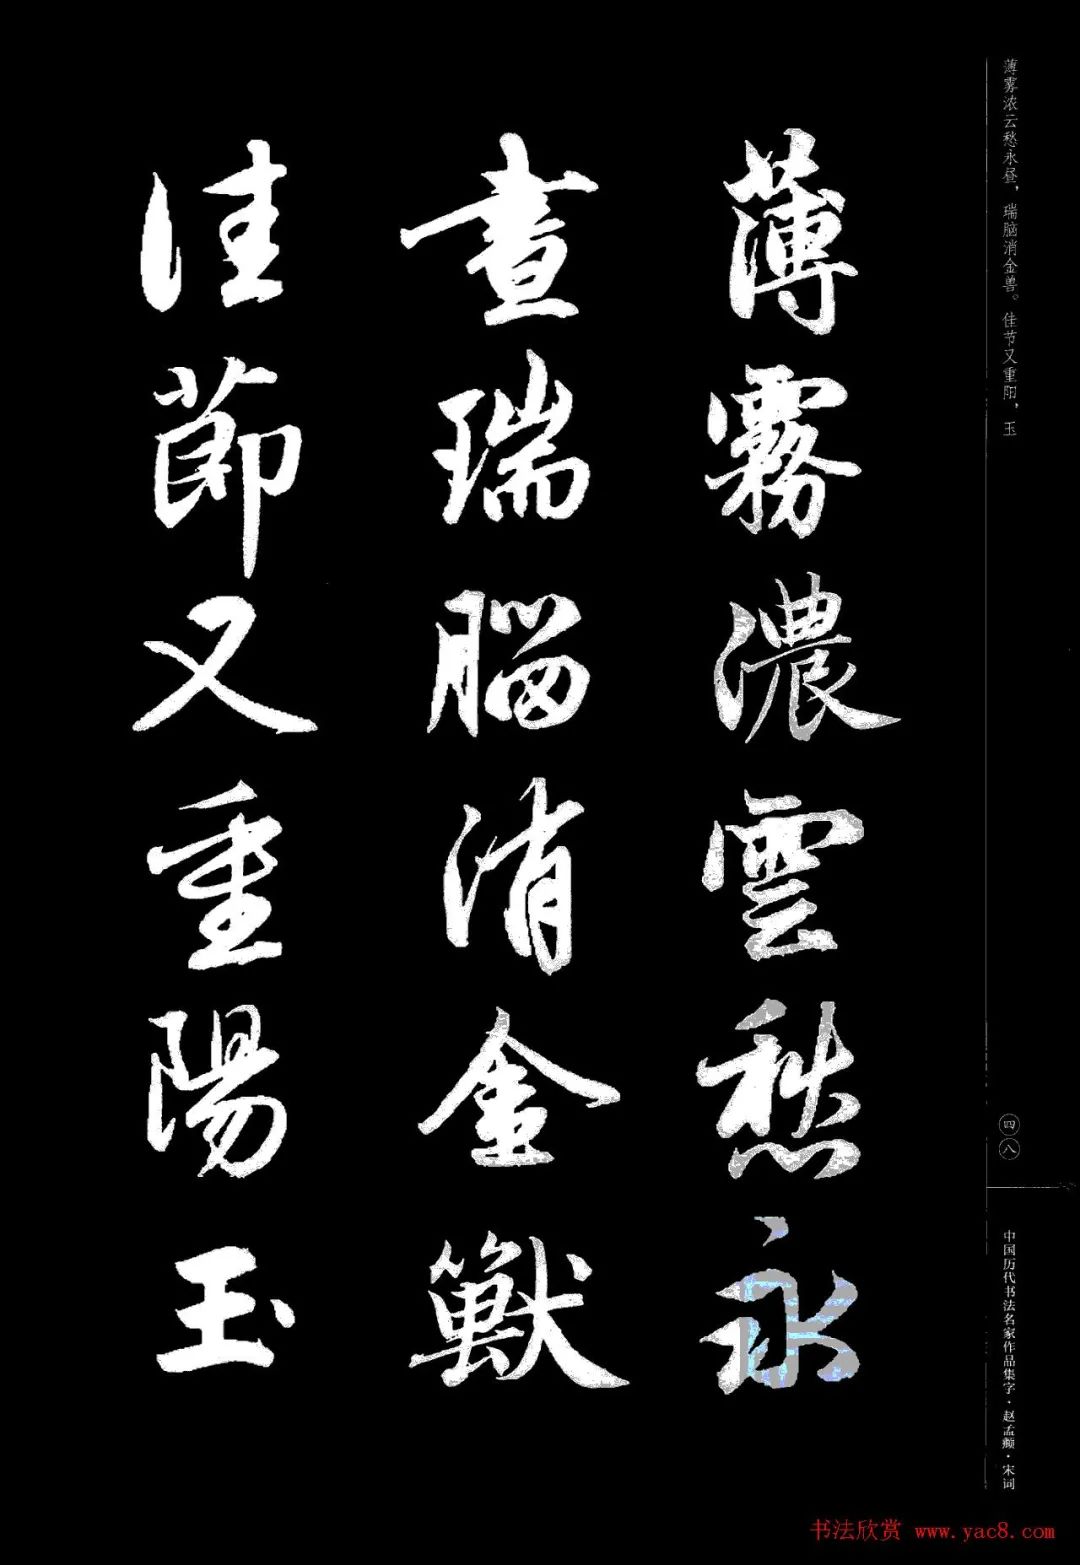 薄雾浓云愁永昼，瑞脑消金兽。佳节又重阳，玉
薄霧濃雲愁永
晝瑞腦消金獸
佳節又重陽玉
四八
中国历代书法名家作品集字·赵孟頫·宋词
书法欣赏 www.yac8.com